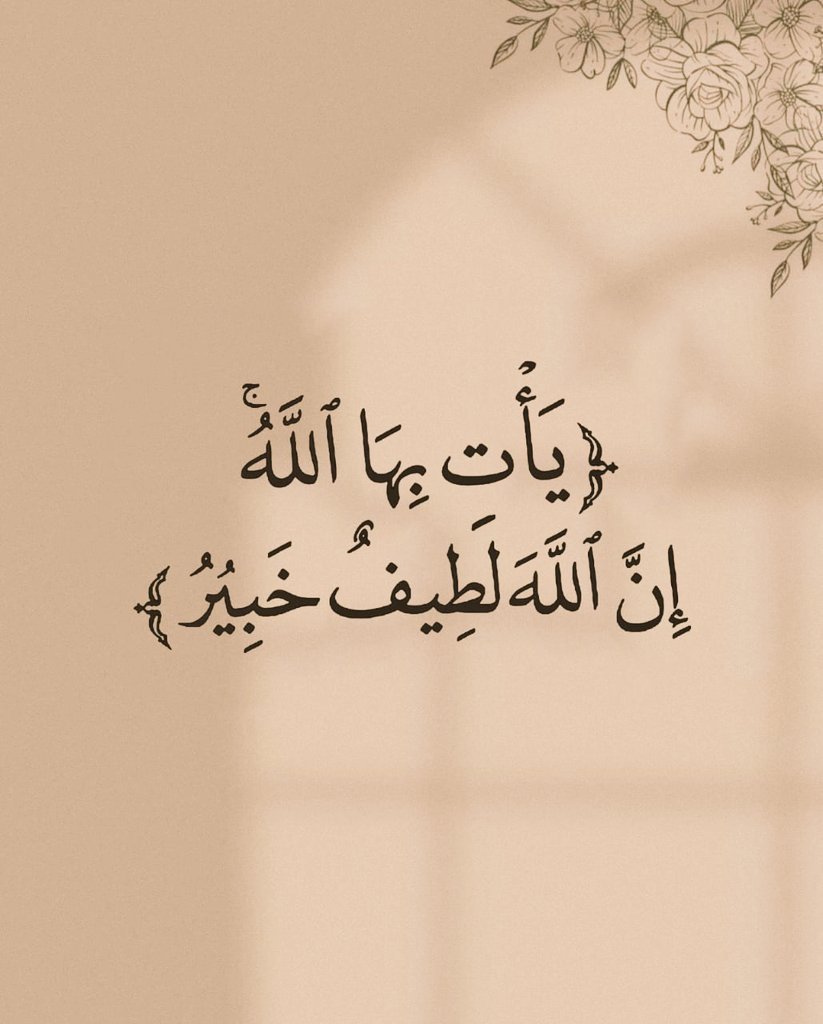 ﴿يَأۡتِ بِهَا ٱللَّهُۚ
إِنَّ ٱللَّهَ لَطِيفٌ خَبِيُرُ﴾